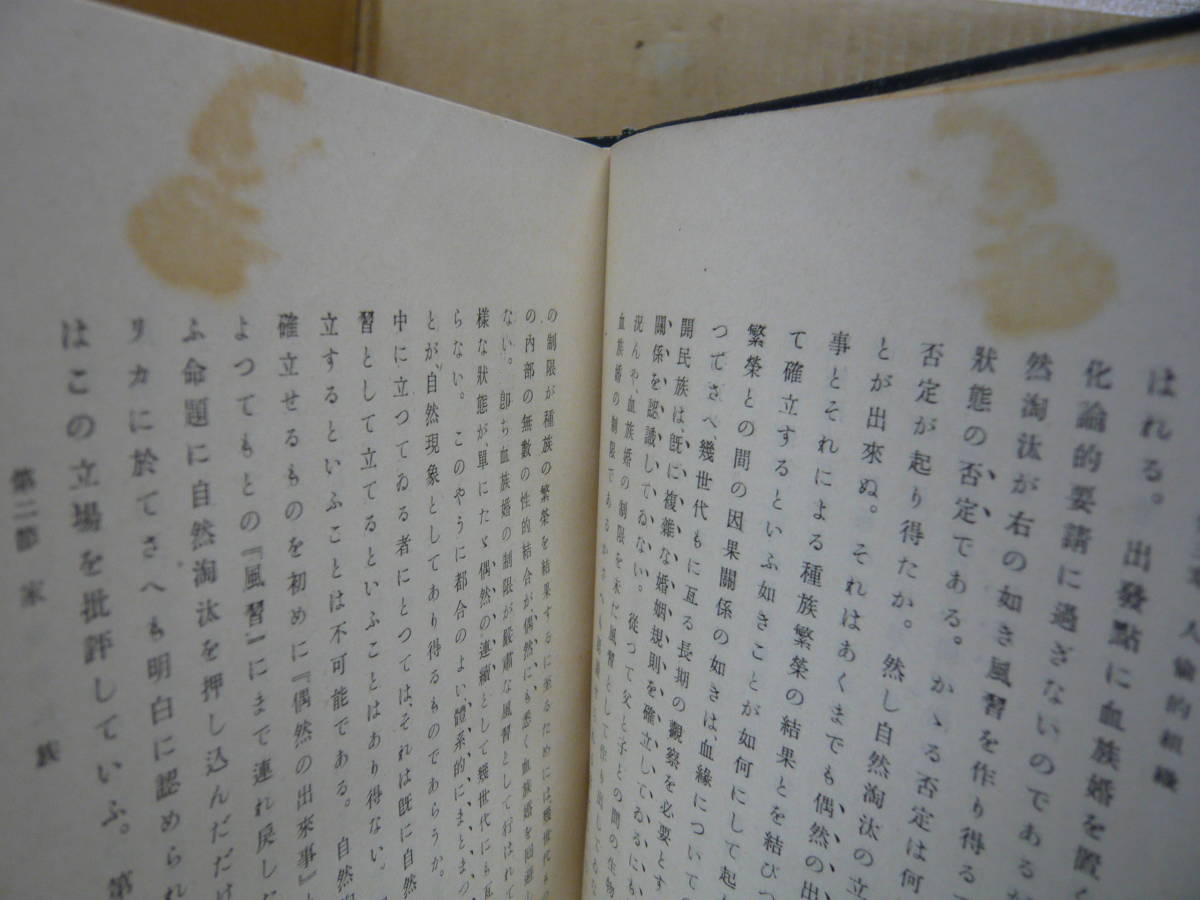 人倫的組織
はれる。出發點に血族婚を置く
化論的要請に過ぎないのである
然淘汰が右の如き風習を作り得る
狀態の否定である。かゝる否定は何
否定が起り得たか。然し自然淘汰の立
とが出來ぬ。それはあくまでも偶然の出
事とそれによる種族繁榮の結果とを結びつ
て確立するといふ如きことが如何にして起
繁榮との間の因果關係の如きは、血緣についての
つてさへ、幾世代もに亙る長期の觀察を必要とす
開民族は、既に複雜な婚姻規則を確立してゐるにも
關係を認識してゐない。從つて父と子との間の生物
況んや血族婚の制限を未だ風習として作り出してゐな
血族婚の制限であるか
の制限が種族の繁榮を結果するに至るためには、幾世代もの
の內部の無數の性的結合が、偶然にも悉く血族婚を
ない。卽ち血族婚の制限が嚴肅な風習として行はれて
樣な狀態が、單にたゞ偶然の連續として幾世代にも亙
らない。このやうに都合のよい、體系的にまとまつ
とが、自然現象としてあり得るものであらうか。
中に立つてゐる者にとつては、それは既に自然
習として立てるといふことはあり得ない。
立するといふことは不可能である。自然
確立せるものを初めに『偶然の出來事』
よつてもとの『風習』にまで連れ戾した
ふ命題に自然淘汰を押し込んだだけ
リカに於てさへも明白に認められ
はこの立場を批評していふ。第
第二節 家 族